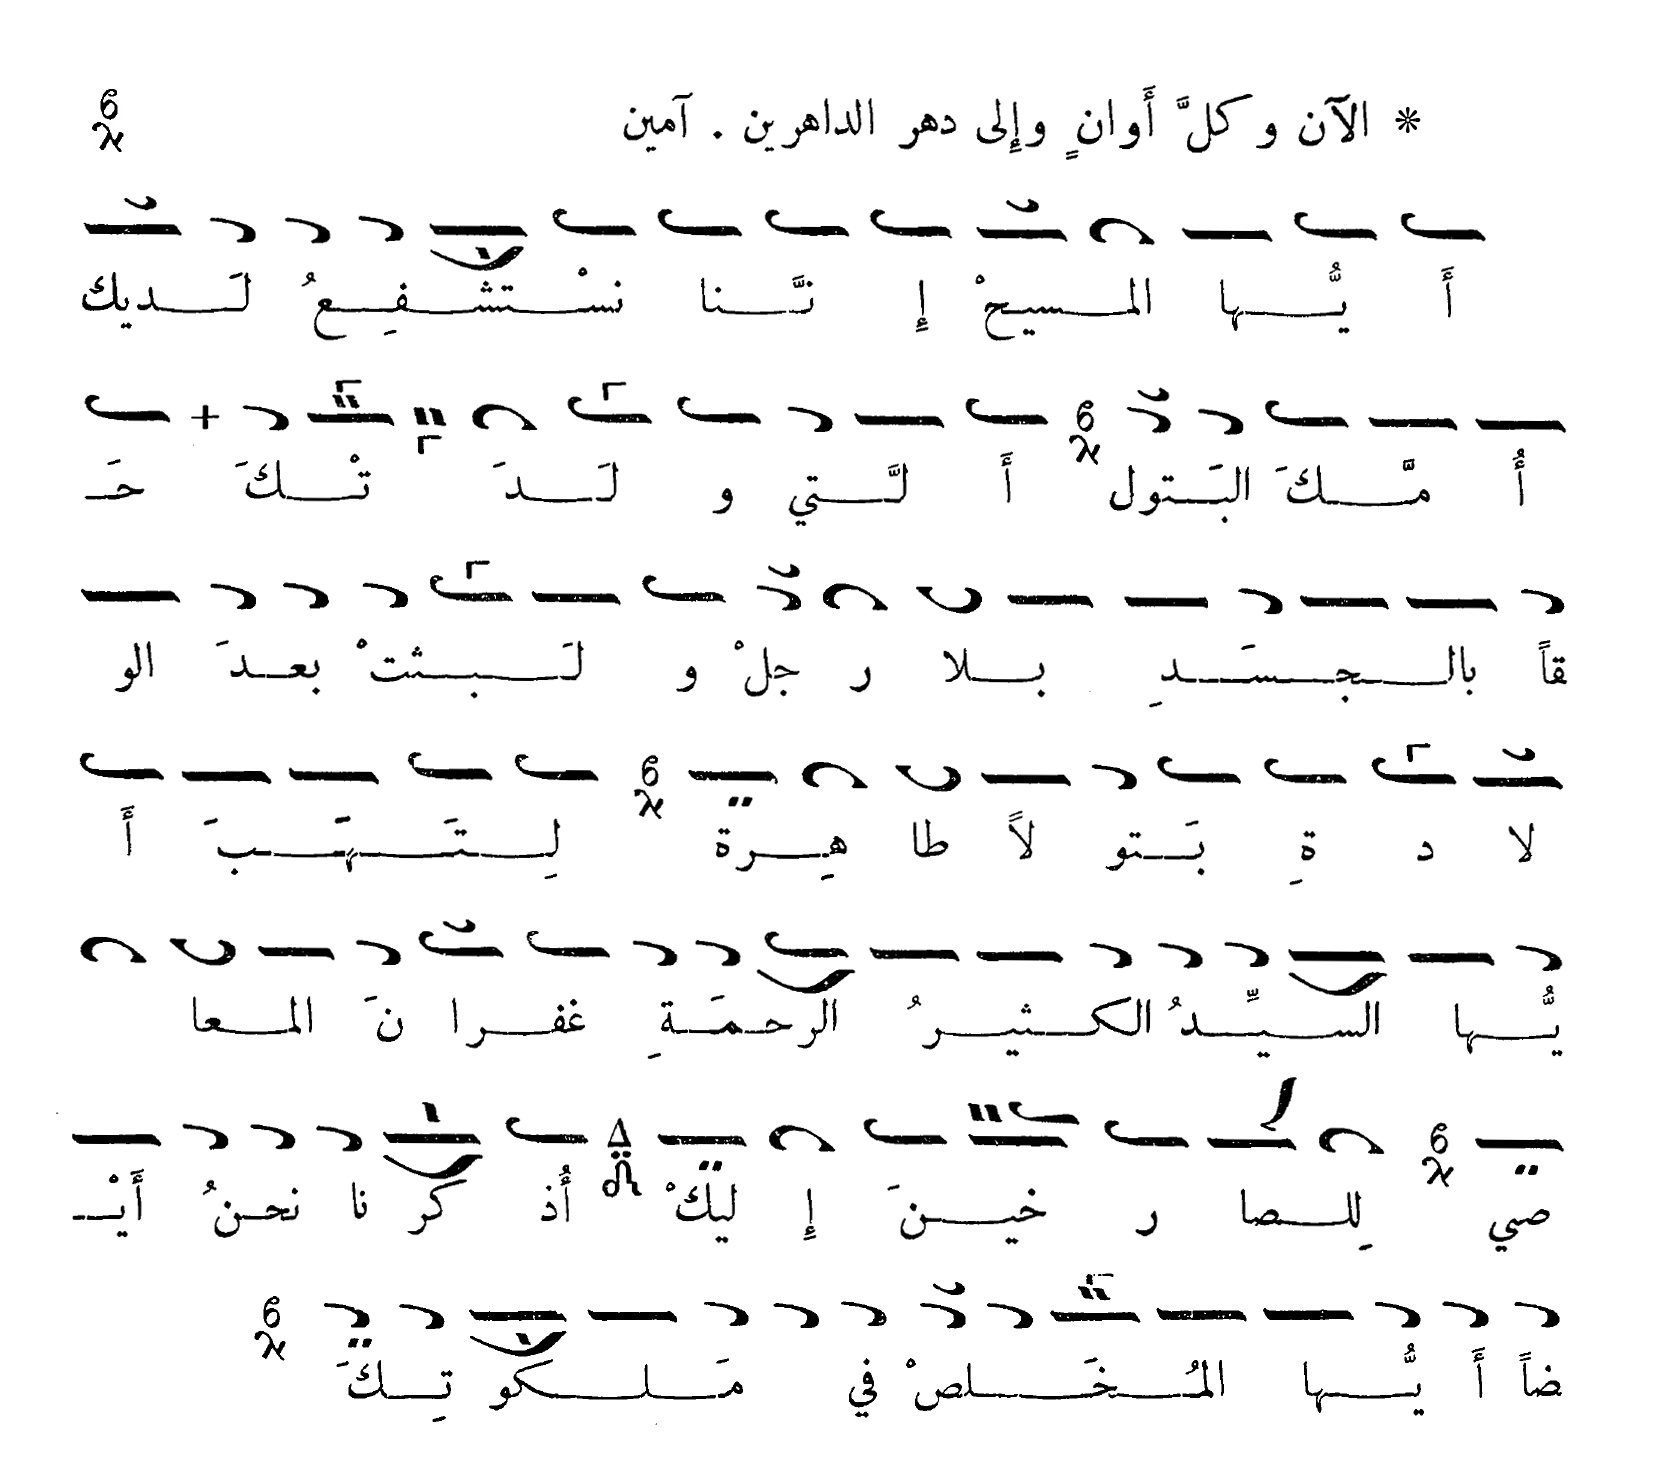 * الآن وكلَّ أَوانٍ وإِلى دهر الداهرين . آمين
أَ يُّها المسيحْ إِ نَّنا نسْتشفِعُ لَديك
أُ مَّكَ البَتول أَ لَّتي و لَدَ تْكَ حَـ
قاً بالجسَدِ بلا ر جلْ و لَبثتْ بعدَ الو
لا د ةِ بَتو لاً طا هِرة لِتَهَبَ أَ
يُّها السيِّدُ الكثيرُ الرحمَةِ غفرا نَ المعا
صي لِلصا ر خينَ إِ ليكْ أُذ كر نا نحنُ أَيْـ
ضاً أَ يُّها المُخَلصْ في مَلكو تِكَ